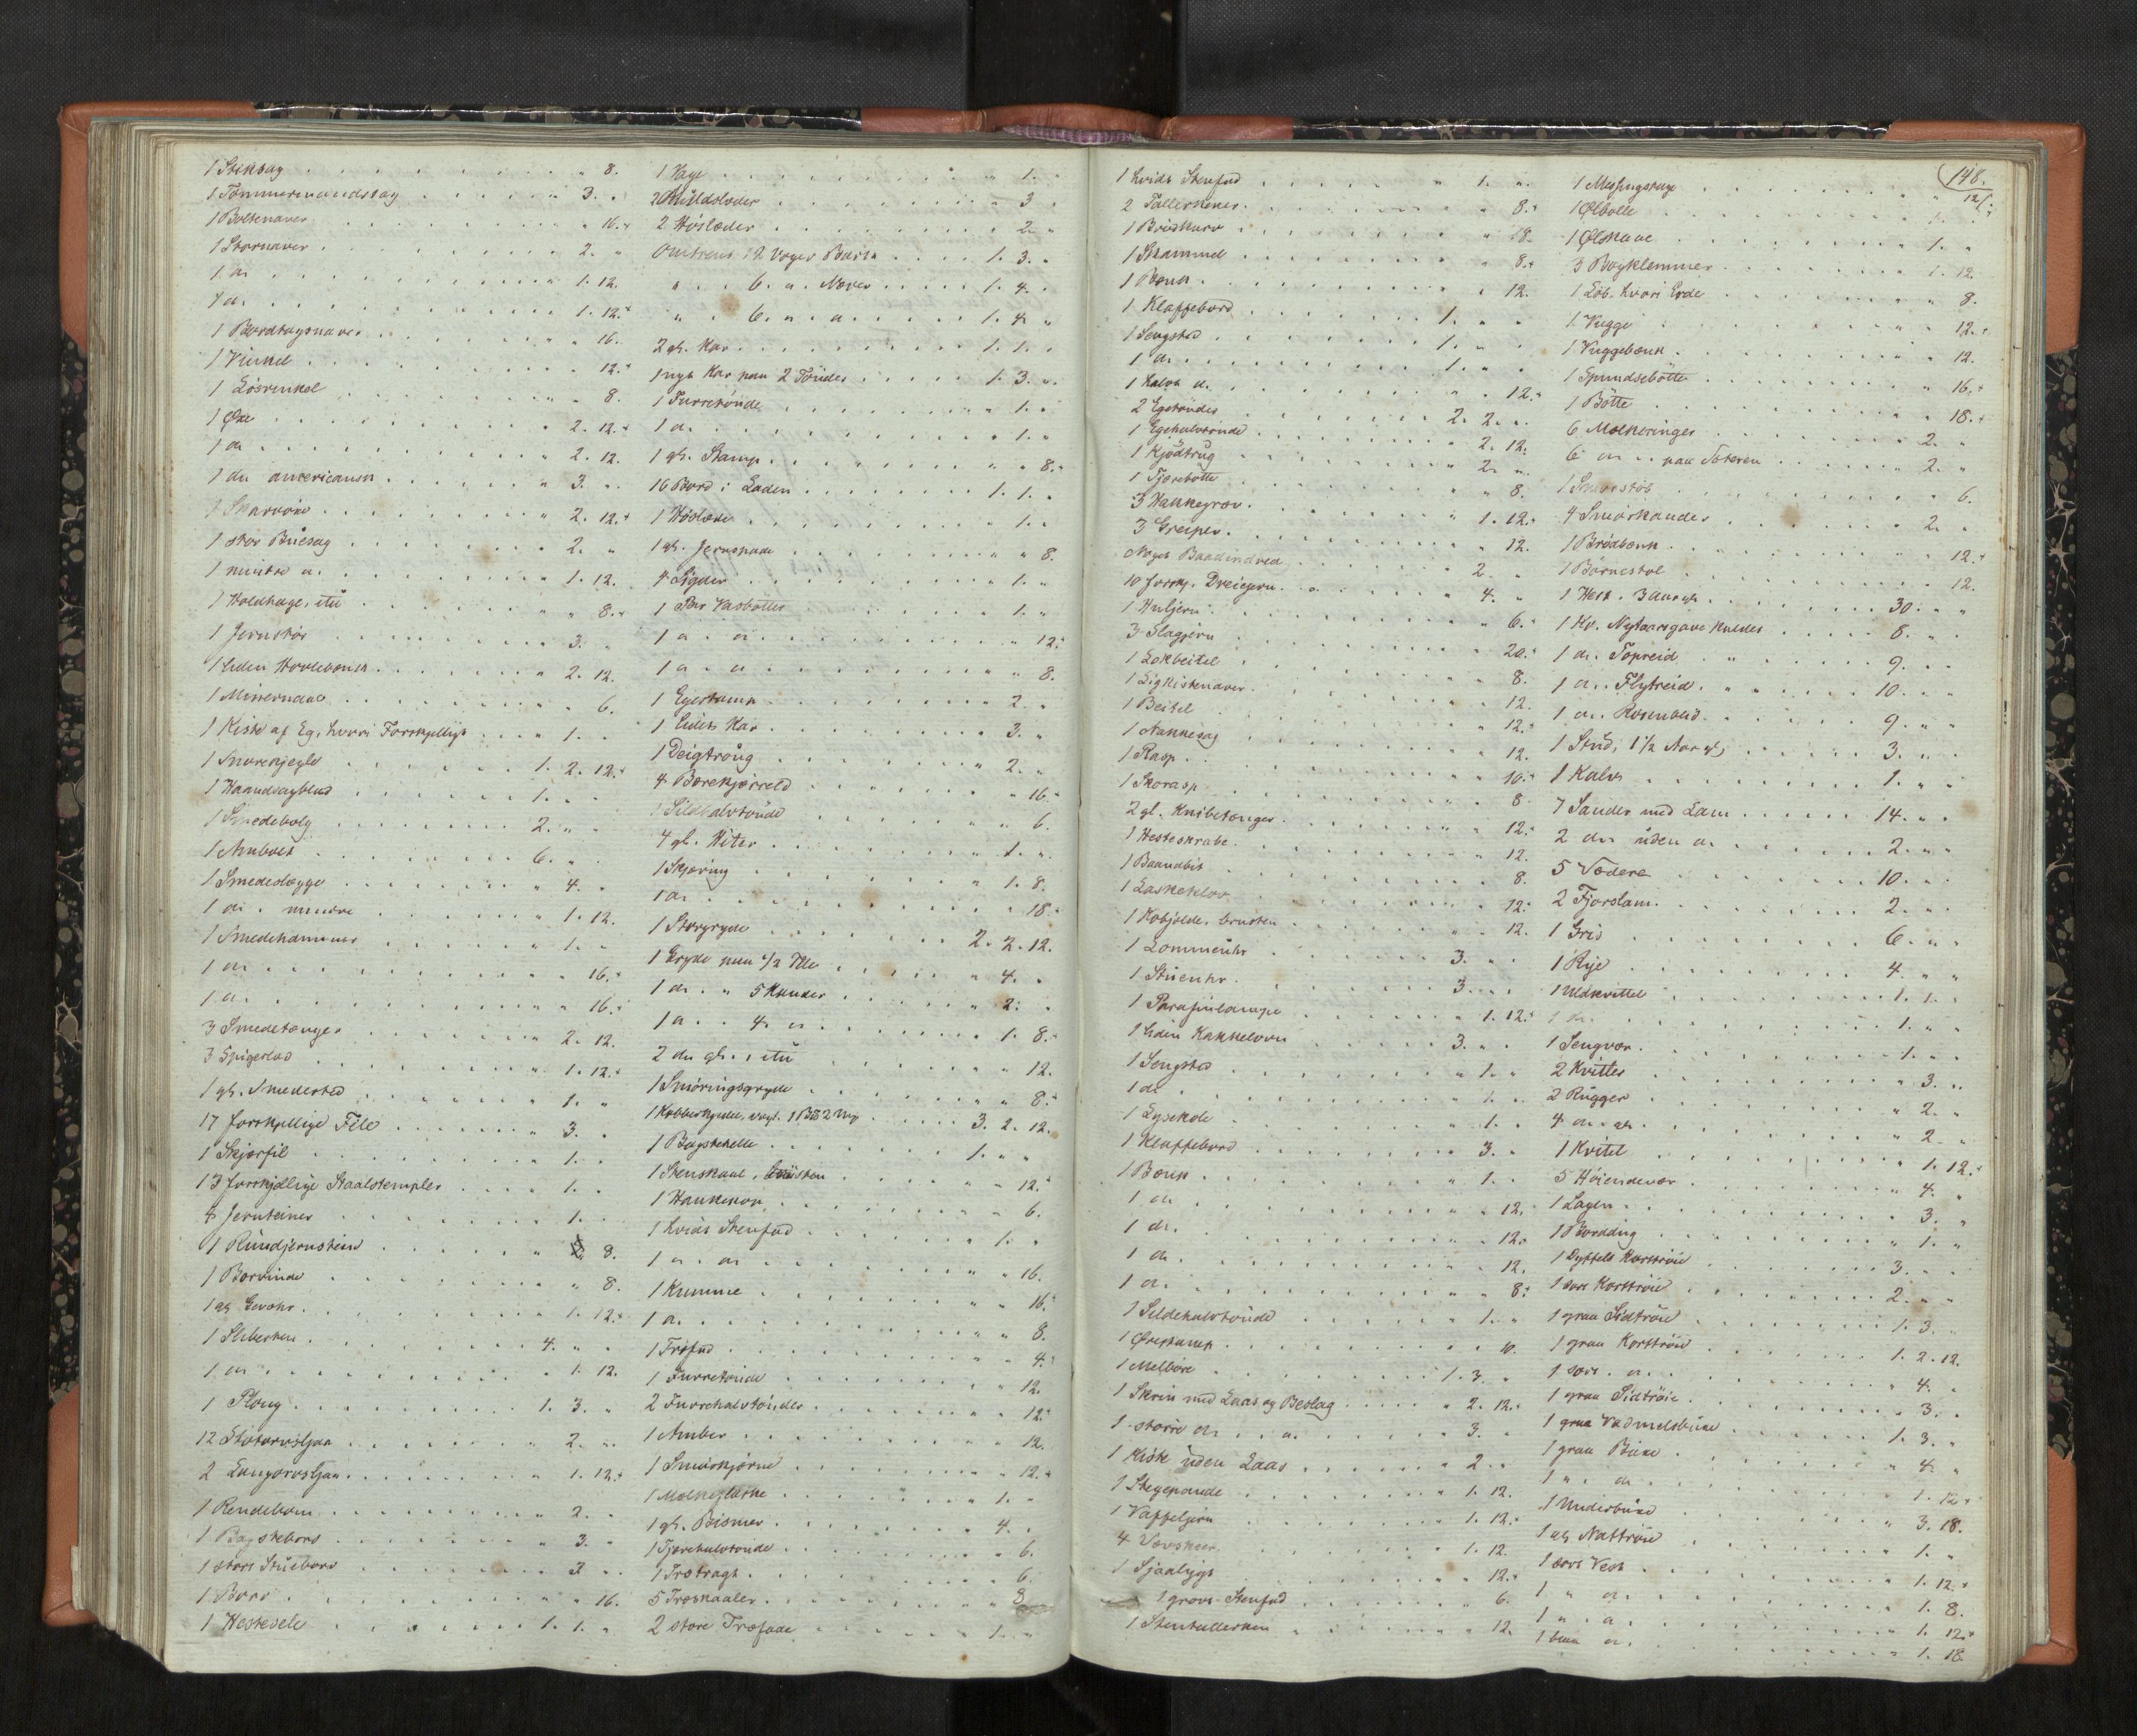 1 Stiksag 8.
1 Tømmermandssag 3.
1 Boltenaver 16.
1 Stornaver 2.
1 do 1. 12.
1 do 1. 12.
1 Bordtagsnaver 16.
1 Vinkel 12.
1 Løsvinkel 8.
1 Øxe 2. 12.
1 do 2. 12.
1 do americansk 3.
1 Skarøxe 2. 12.
1 stor Buesag 2.
1 mindre do 1. 12.
1 Holdhage, itu 8.
1 Jernstør 3.
1 liden Hovlebænk 2. 12.
1 6.
1 Kiste af Eg, hvori Forskjelligt 1.
1 Snorekjegle 1. 2. 12.
1 Haandsagblad 1.
1 Smedebælg 2.
1 Ambolt 6.
1 Smedeslægge 4.
1 do mindre 1. 12.
1 Smedehammer 1.
1 do 16.
1 do 16.
3 Smedetænger 2. 12.
3 Spigerlad 1. 12.
1 gl. Smedestad 1.
17 forskjellige File 3.
1 Skjærfil 1.
13 forskjellige Staalstempler 1.
4 Jernteiner 1.
1 Rundjernstein 8.
1 Borvinde 8.
1 gl. Gevæhr 1. 12.
1 Slibesten 4.
1 do 1. 12.
1 Ploug 1. 3.
12 Stutorvsljaa 2.
2 Langorvsljaa 1. 12.
1 Rendebom 2.
1 Bagstebord 3.
1 stort Stuebord 3.
1 Bord 16.
1 Hestesele 1. 1.
1 1.
2 Muldsloder 3
2 Høslæder 2.
Omtrent 12 Voger Bark 1. 3.
" 6. " Næver 1. 4.
" 6. " do 1. 4
2 gl. Kar 1. 1.
1 nyt Kar paa 2 Tønder 1. 3.
1 Furretønde 1.
1 do 1.
1 gl. Stamp 8.
16 Bord i Laden 1. 1.
1 1.
1 gl. Jernspade 8.
4 Sigder 1.
1 Par Vasbøtter 1.
1 do do 12.
1 do do 8.
1 Egestamp 2.
1 Kar 3.
1 Deigtroug 2.
4 Børekjørreld 16.
1 Sildhalvtønde 6.
4 gl. Hiter 1.
1 Skjæring 1. 8.
1 do 18.
1 Storgryde 2. 2. 12.
1 Gryde paa 1/2 Tde 4.
1 do " 5 Kander 2.
1 do " 4 do 1. 8.
2 do gl., itu 12.
1 Smøringsgryde 8.
1 Kobberkjedel, vægt. 1 B℔ 2 Mrk 3. 2. 12.
1 Bagstehelle 1.
1 Stenskaal, brusten 12.
1 Hankekop 6.
1 hvidt Stenfad 1.
1 do do 16.
1 Kumme 16.
1 do 8.
1 Træfad 4.
1 Furretønde 12.
2 Furrehalvtønder 12.
1 Amber 12.
1 Smørkjærne 12.
1 Melkeflaske 1.
1 gl. Bismer 4.
1 Tjærehalvtønde 6.
1 Trætragt 6.
5 Træskaaler 8
2 store Træfade 1.
148.
1 hvidt Stenfad 1.
2 Tallerkener 8.
1 Brødkurv 18.
1 Skammel 8.
1 Bænk 12.
1 Klaffebord 1.
1 Sengsted 1.
1 do 1.
1 halvt do 12.
2 Egetønder 2. 2.
1 Egehalvtønde 2. 12.
1 Kjødtrug 2.
1 Tjærebøtte 8.
3 Hakkegrev 1. 12.
3 Greiper 12.
Noget Baadindved 2.
10 forskj. Dreiejern 4.
1 Huljern 6.
3 Slagjern 20.
1 Lokbeitel 8.
1 Ligkistenaver 12.
1 Beitel 12.
1 Nakkesag 12.
1 Rasp 10.
1 Skorasp 8.
2 gl. Knibetænger 12.
1 Hesteskrabe 12.
1 Baandbit 8.
1 Laskeklov 12.
1 Kobjelde, brusten 12.
1 Lommeuhr 3.
1 Stueuhr 3.
1 Parafinlampe 1. 12.
1 liden Kakkelovn 3.
1 Sengsted 1.
1 do 1.
1 Lysekole 1.
1 Klaffebord 3.
1 Bænk 1.
1 do 12.
1 do 12.
1 do 12.
1 do 8.
1 Sildehalvtønde 1.
1 Ørestamp 10.
1 Melbøre 1. 3.
1 Skrin med Laas og Beslag 2. 12.
1 større do " do 3.
1 Kiste uden Laas 2.
1 Stegepande 1. 12.
1 Vaffeljern 1. 12.
4 Vævskeer 1. 12.
1 Sjaalygt 12.
1 grovt Stenfad 6.
1 Stentallerken 12.
1 Messingstage 12.
1 Ølbolle
1 Ølskaae 1.
3 Bogklemmer 1. 12.
1 Løb, hvori Erde 8.
1 Vugge 12.
1 Vuggebænk 12.
1 Spundsebøtte 16.
1 Bøtte 18.
6 Melkeringer 2.
6 do paa Støleren 2.
1 6.
4 Smørkander 2.
1 Brødbænk 12.
1 Barnestol 12.
1 Hest, 3 Aar gl. 30.
1 Ko. Nytaarsgave kaldes 8.
1 do. Topreid " 9.
1 do. Flytreid " 10.
1 do. Rosenlid 9.
1 Stud, 1 1/2 Aar gl. 3.
1 Kalv 1.
7 Sauder med Lam 14.
2 do uden do 2.
5 Vædere 10.
2 Fjorslam 2.
1 Gris 6.
1 Rye 4.
1 Uldkvittel 1. 1.
1 do 1.
1 Sengvær 1.
2 Kvitler 3.
2 Rugger 2.
4 do gl. 2.
1 Kvitel 1. 12.
5 Høiendevær 4.
1 Lagen 3.
1 Borddug 1.
1 Dyffels Korttrøie 3.
1 sort Korttrøie 2.
1 graa Sidtrøie 1. 3.
1 graa Korttrøie 1. 2. 12.
1 sort do 4.
1 graa Sidtrøie 3.
1 graa Vadmelsbuxe 1. 3.
1 graa Buxe 4.
1 " do 1. 12.
1 Underbuxe 3. 18.
1 gl. Nattrøie 1.
1 sort Vest 1. 12.
1 " do 1. 8.
1 " do 1. 12.
1 blaa do 1. 18.